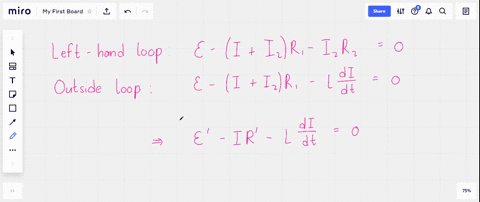 miro My First Board Share
Left-hand loop: ℰ - (I + I₂)R₁ - I₂R₂ = 0
Outside loop: ℰ - (I + I₂)R₁ - L dI/dt = 0
⇒ ℰ' - IR' - L dI/dt = 0
75%